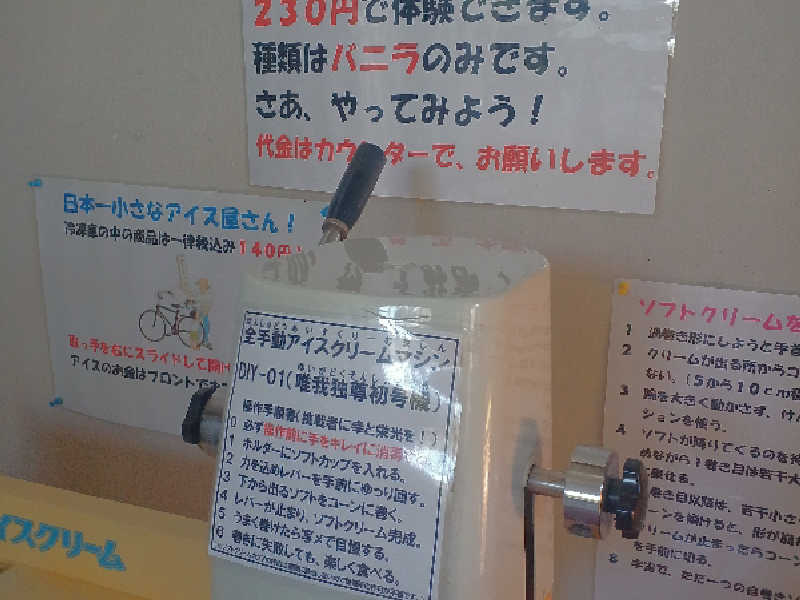 230円で体験できます。
種類はバニラのみです。
さあ、やってみよう!
代金はカウンターで、お願いします。
日本一小さなアイス屋さん!
冷凍庫の中の商品は一律税込み140円!
取っ手を右にスライドして開け
アイスのお金はフロントで
全手動アイスクリームマシン
DIY-01(唯我独尊初号機)
操作手順書(挑戦者に幸と栄光を!)
0 必ず操作前に手をキレイに消毒
1 ホルダーにソフトカップを入れる。
2 力を込めレバーを手前にゆっり回す。
3 下から出るソフトをコーンに巻く。
4 レバーが止まり、ソフトクリーム完成。
5 うまく巻けたら写メで自慢する。
6 巻きに失敗しても、楽しく食べる。
ソフトクリームを
1 渦巻き形にしようと手を
2 クリームが出る所からコ
ない。(5から10cm
3 腕を大きく動かさず、
ションを使う。
4 ソフトが降りてくるのを
ながら1巻き目は若干大
に乗せる。
巻き目以降は、若干小さ
ーンを傾けると、形が崩れ
リームが止まったらコーン
を手前に切る。
8
アイスクリーム